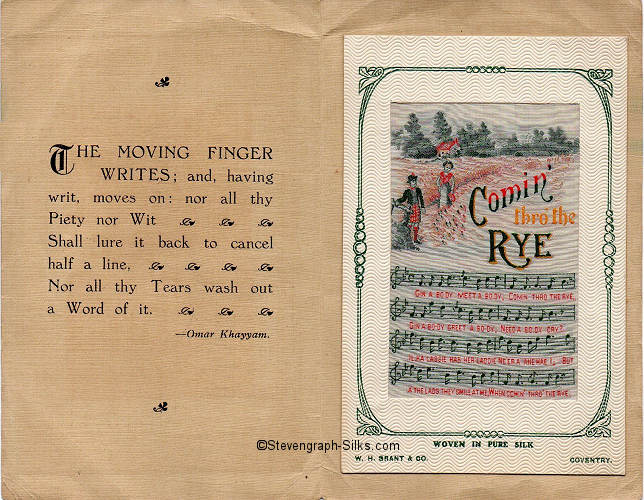 THE MOVING FINGER
WRITES; and, having
writ, moves on: nor all thy
Piety nor Wit
Shall lure it back to cancel
half a line,
Nor all thy Tears wash out
a Word of it.
—Omar Khayyam.
Comin'
thro the
RYE
GIN A BODY MEET A BODY, COMIN' THRO THE RYE,
GIN A BODY GREET A BODY, NEED A BODY CRY?
ILKA LASSIE HAS HER LADDIE NE'ER A ANE HAE I, BUT
A' THE LADS THEY SMILE AT ME, WHEN COMIN' THRO' THE RYE.
WOVEN IN PURE SILK
W. H. GRANT & CO. COVENTRY.
©Stevengraph-Silks.com